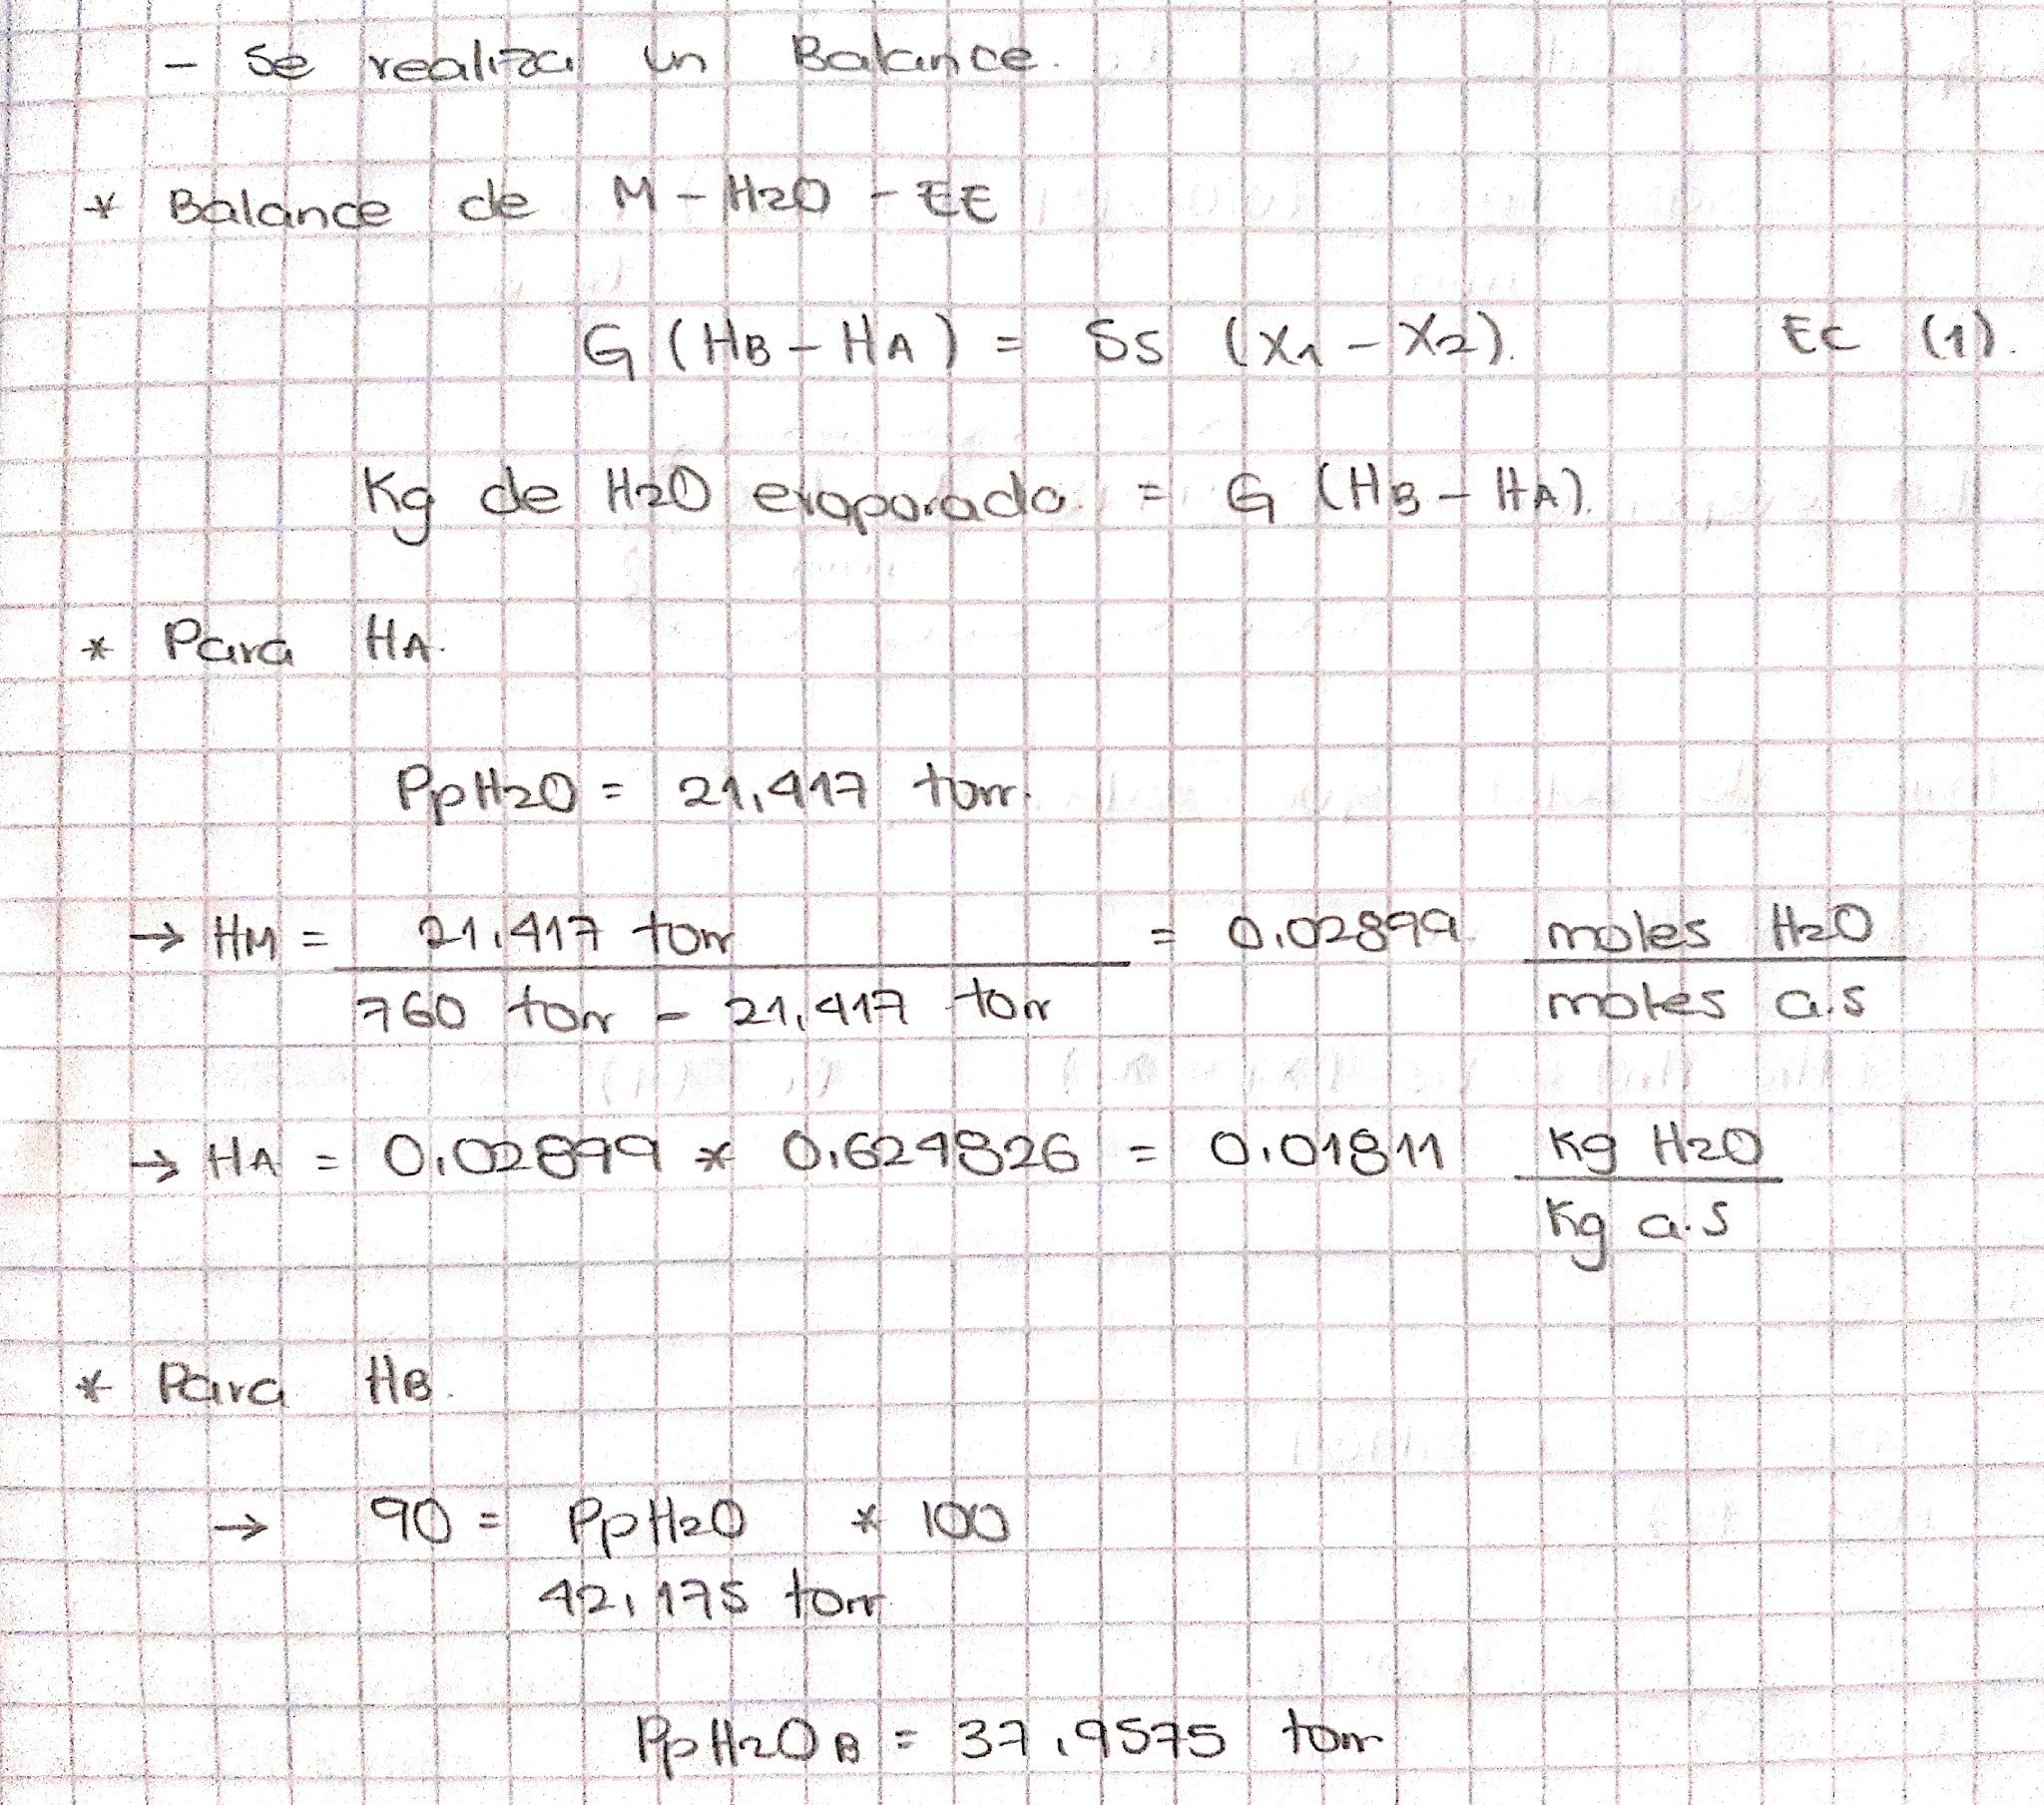 - Se realiza un Balance.
* Balance de M - H2O - EE
G (HB - HA) = SS (X1 - X2). Ec (1).
Kg de H2O evaporado. = G (HB - HA).
* Para HA.
PpH2O = 21,417 torr.
→ HM = 21,417 torr = 0,02899 moles H2O
760 torr - 21,417 torr moles a.s
→ HA = 0,02899 * 0,624826 = 0,01811 Kg H2O
Kg a.s
* Para HB.
→ 90 = PpH2O * 100
42,175 torr
PpH2OB = 37,9575 torr